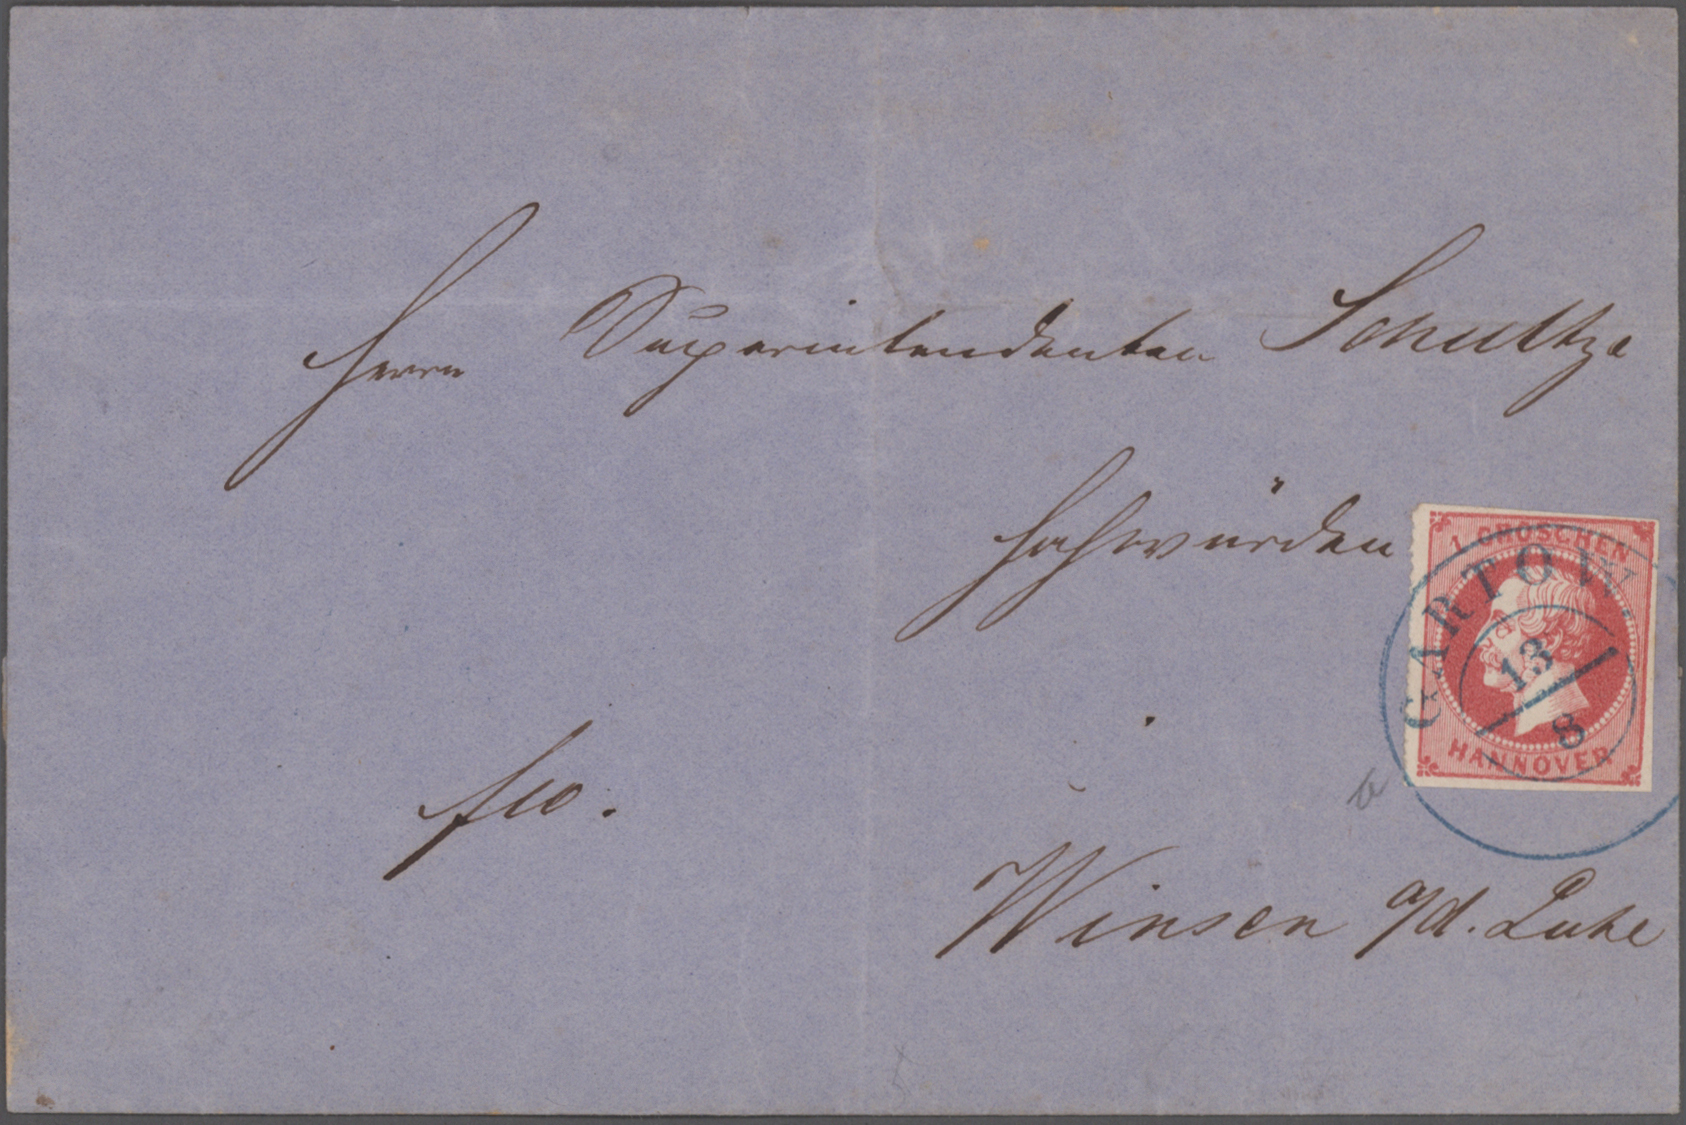 Herrn Superintendenten Schultze
Hochwürden
1 GROSCHEN
HANNOVER
GARTOW.
13/8
frco.
Winsen a/d. Luhe